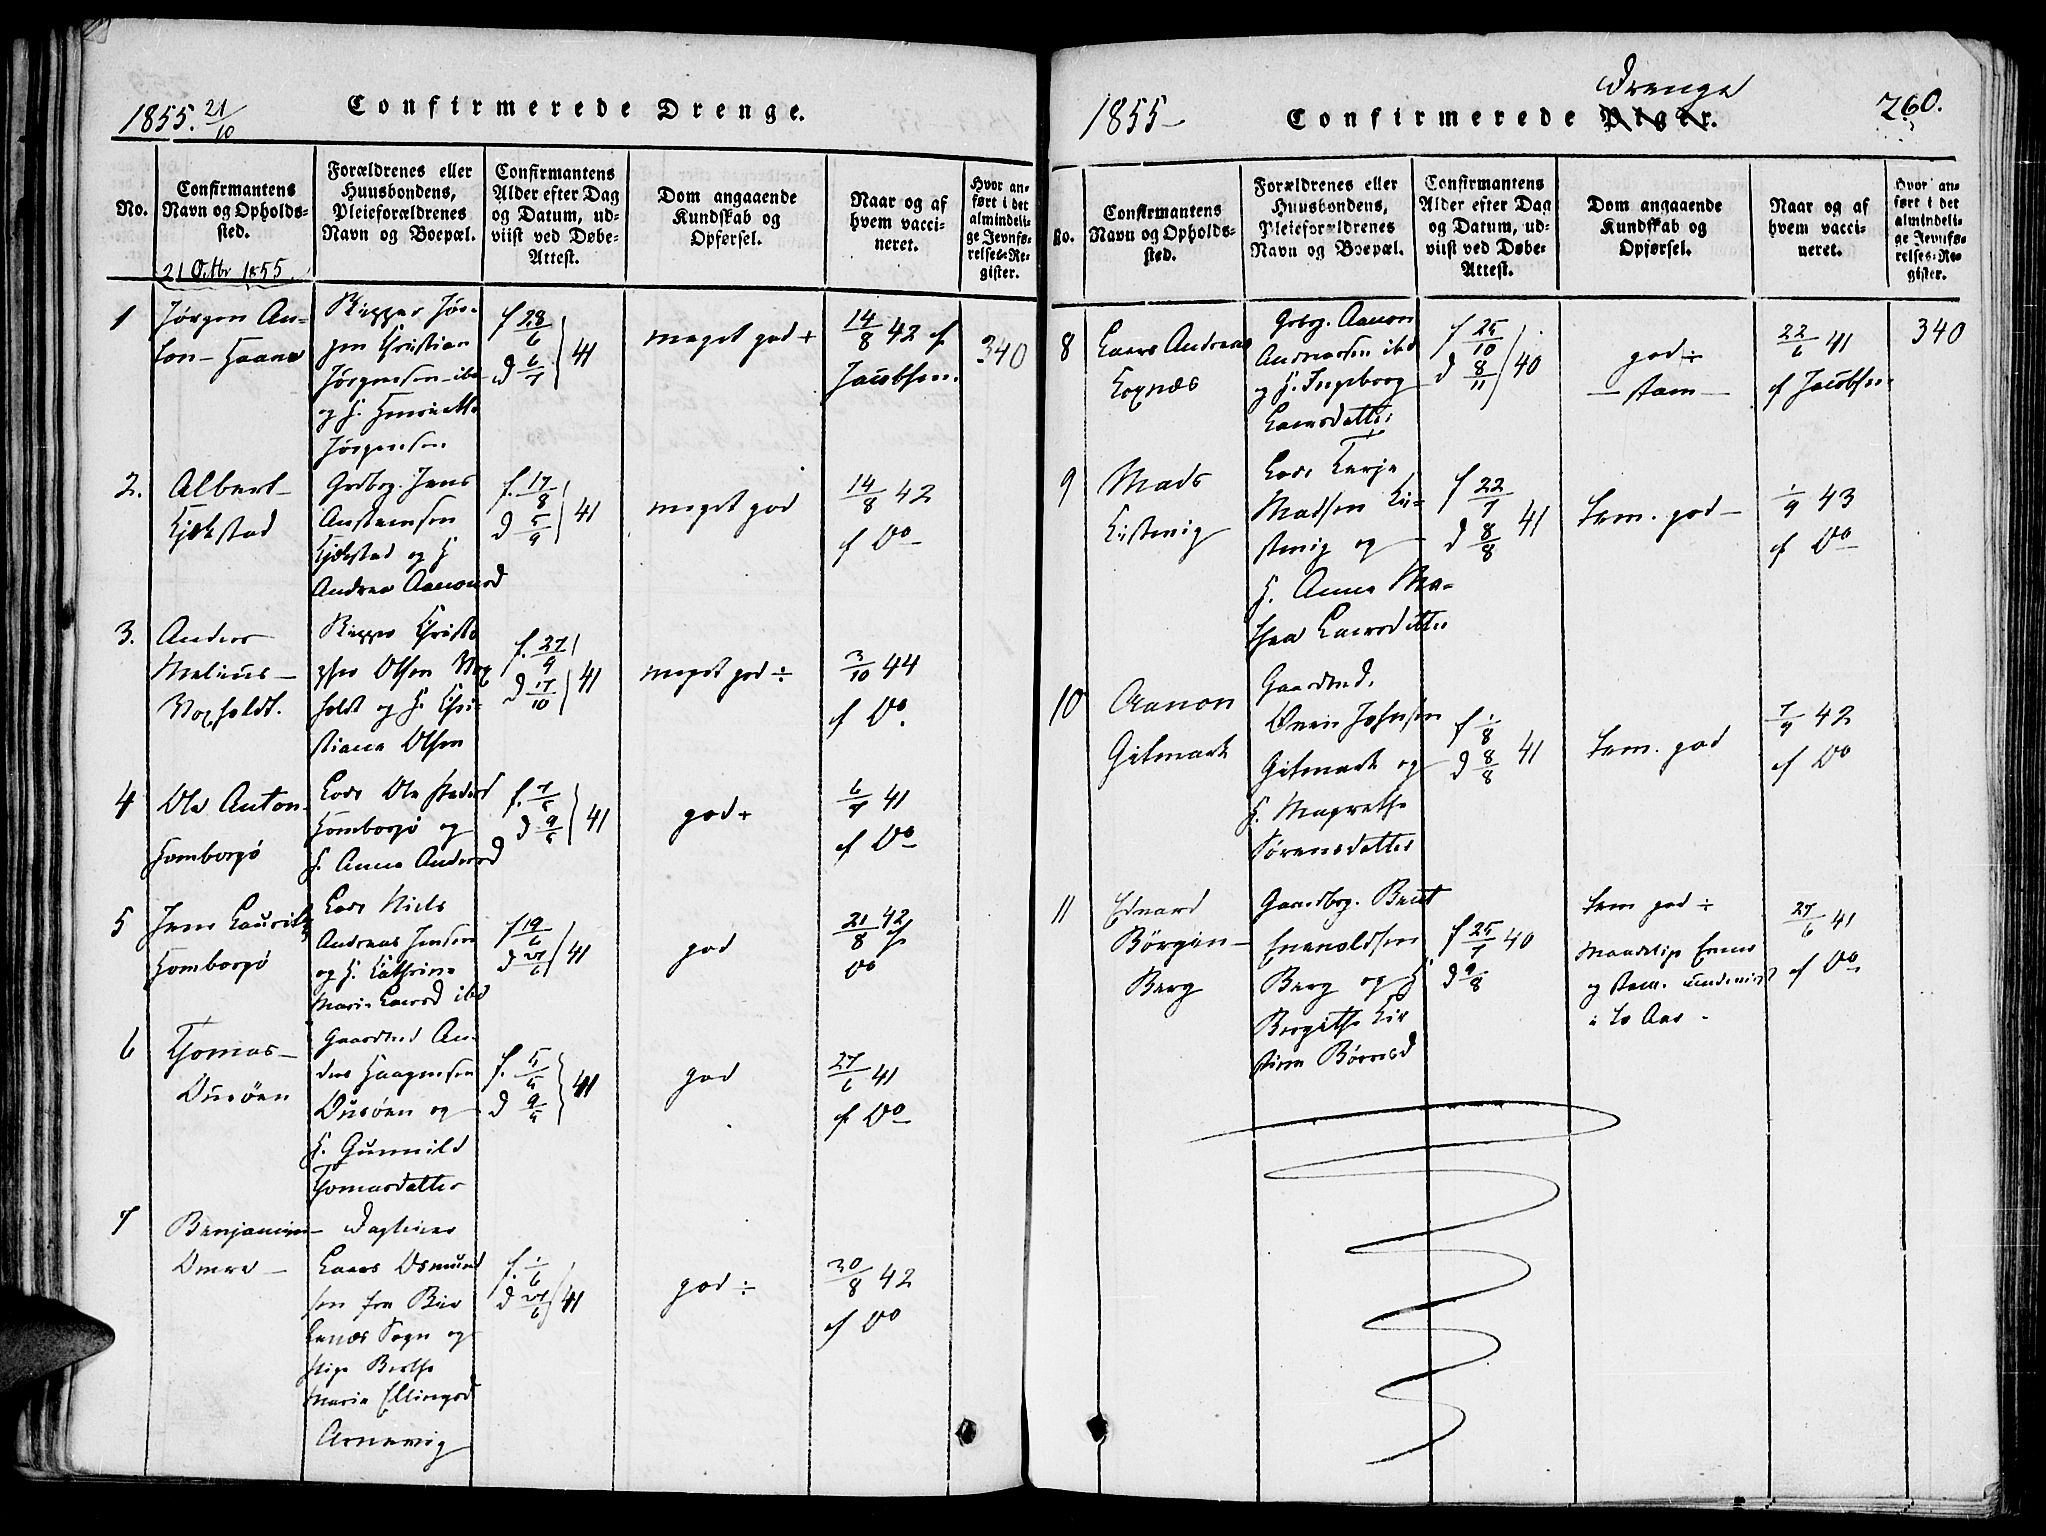 1855. 21/10
Confirmerede Drenge.
No.
Confirmantens Navn og Opholds-sted.
Forældrenes eller Huusbondens, Pleieforældrenes Navn og Boepæl.
Confirmantens Alder efter Dag og Datum, ud-viist ved Døbe-Attest.
Dom angaaende Kundskab og Opførsel.
Naar og af hvem vacci-neret.
Hvor an-ført i det almindeli-ge Jevnfø-relses-Re-gister.
21 Octbr 1855.
1
Jørgen An-
ton - Haave
Skipper Jør-
gen Christian
Jørgensen ibd
og H. Henriette
Jørgensen
f 28/6
d 6/7 } 41
meget god +
14/8 42 af
Jacobsen.
340
2.
Albert
Kjekstad
Grdbrg. Jens
Anstensen
Kjekstad og H
Andrea Aanonsd
f. 17/8
d 5/9 } 41
meget god
14/8 42
af Do
3.
Anders
Melius
Voxholdt.
Skipper Christo
pher Olsen Vox
holdt og H. Chri-
stiane Olsen
f. 27/9
d 17/10 } 41
meget god ÷
3/10 44
af Do.
4
Ole Anton
Homborsø
Lods Ole Peders
Homborsø og
H. Anne Andersd
f. 7/5
d 9/5 } 41
god +
6/7 41
af Do
5
Jens Lauritz
Homborsø
Lods Niels
Andreas Jensen
og H. Cathrine
Marie Larsd ibd
f 19/6
d 27/6 } 41
god
21/8 42 af
Do
6
Thomas
Gaardmd An-
ders Haagensen
og
H. Gunnild
Thomasdatter
f. 5/4
d 9/4 } 41
god
27/6 41
af Do
7
Benjamin
Omre
Dagleier
Laers Osmund
sen fra Bir
kenæs Sogn og
Pige Berthe
Marie Ellingsd
Arnevig
f. 1/6
d 27/6 } 41
god ÷
30/8 42
af Do
1855
Confirmerede Piger.
Drenge
260.
No.
Confirmantens Navn og Opholds-sted.
Forældrenes eller Huusbondens, Pleieforældrenes Navn og Boepæl.
Confirmantens Alder efter Dag og Datum, ud-viist ved Døbe-Attest.
Dom angaaende Kundskab og Opførsel.
Naar og af hvem vacci-neret.
Hvor an-ført i det almindeli-ge Jevnfø-relses-Re-gister.
8
Laers Andreas
Grbrg. Aanon
Andreassen ibd
og H. Ingeborg
Laersdatter
f 25/10
d 8/11 } 40
god ÷
- stam -
22/6 41
af Jacobsen
340
9
Mads
Kistevig
Lods Terje
Madsen Ki-
stevig og
H. Anne Ma-
thea Laersdatter
f 22/7
d 8/8 41
tem. god
1/9 43
af Do
10
Aanon
Gitmark
Gaardmd.
Oven Johnsen
Gitmark og
H. Magrethe
Sørensdatter
f 1/8
d 8/8 41
tem. god
7/9 42
af Do
11
Edvard
Børgin
Berg
Gaardbrg. Bent
Enevoldsen
Berg og H
Birgithe Kir
stine Børresd
f 25/7 40
d 9/8
tem god ÷
og stam. underviist
i to Aar
27/6 41
af Do